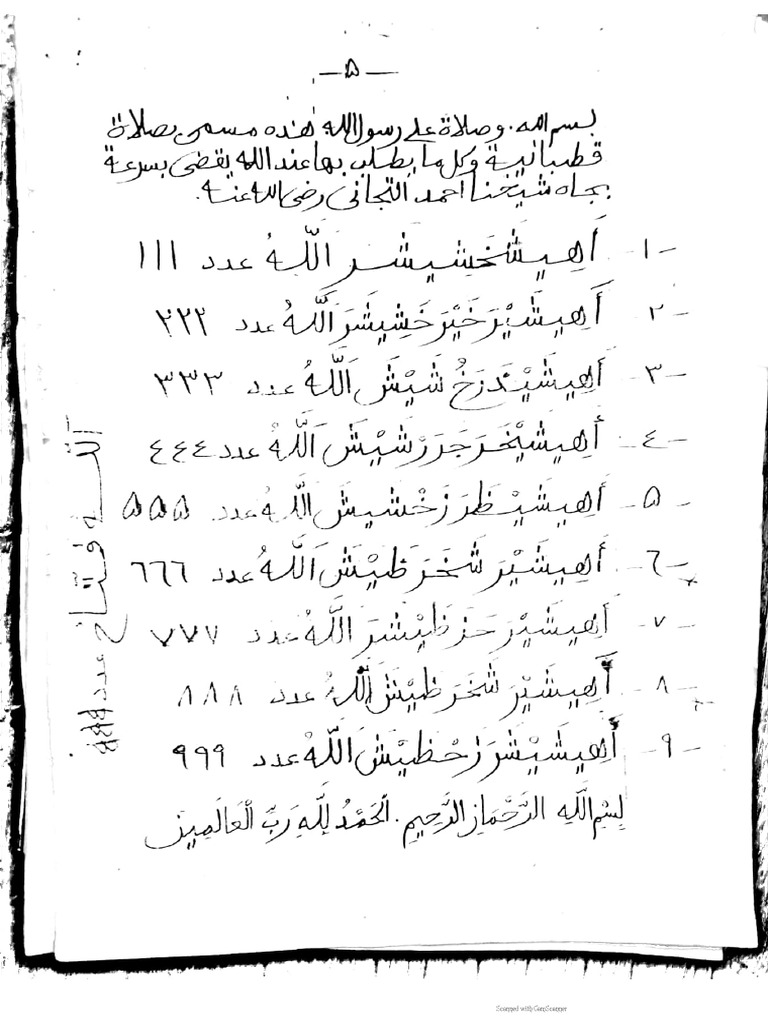 — ۵ —
بسم الله. وصلاة على رسول الله هذه مسمى بصلاة
قطبانية وكل ما يطلب بها عند الله يقضى بسرعة
بجاه شيخنا احمد التجانى رضى الله عنه.
-١- أَهِيشَخشِيشَر اللَّهُ عدد ١١١
-٢- أَهِيشَيْرَخَيْرَخَشِيشَرَ اللَّهُ عدد ٢٢٢
-٣- شَيْشَ اللَّهُ عدد ٣٣٣
-٤- اللَّهُ عدد ٤٤٤
-۵- أَهِيشَيْظَمَرَزَخْشِيشَ اللَّهُ عدد ۵۵۵
-٦- أَهِيشَيْرَ شَخَرَ ظَيْشَ اللَّهُ عدد ٦٦٦
-٧- أَهِيشَيْرَ حَزَ ظَيْشَرَ اللَّهُ عدد ٧٧٧
-٨- أَهِيشَيْرَ شَخَرَ ظَيْشَ اللَّهُ عدد ٨٨٨
-٩- أَهِيشَيْشَرَ زَحْظَيْشَ اللَّهُ عدد ٩٩٩
بِسْمِ اللَّهِ الرَّحْمَانِ الرَّحِيمِ. الحَمْدُ لِلَّهِ رَبِّ الْعَالَمِينَ
عدد
Scanned with CamScanner